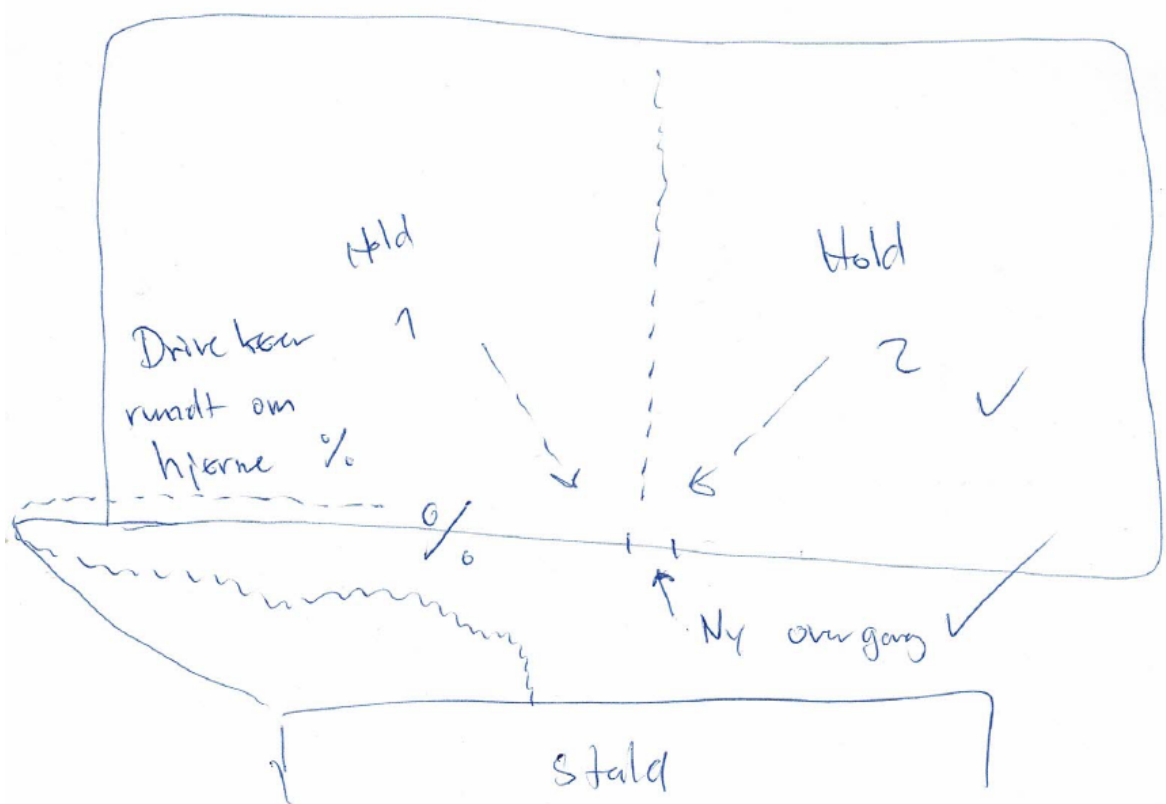 Hold
1
Hold
2 ✓
Drive køer
rundt om
hjørne %
%
Ny overgang ✓
Stald